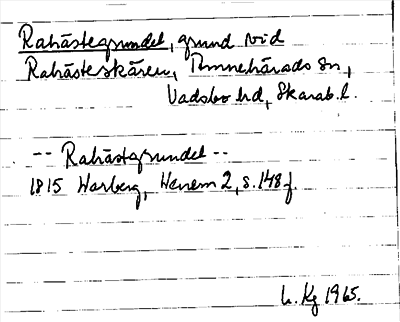 Rahästegrundet, grund vid
Rahästeskären, Amnehärads sn,
Vadsbo hd, Skarab. l.
-- Rahästgrundet --
1815 Warberg, Wenern 2, s. 148 f.
L. Kg 1965.